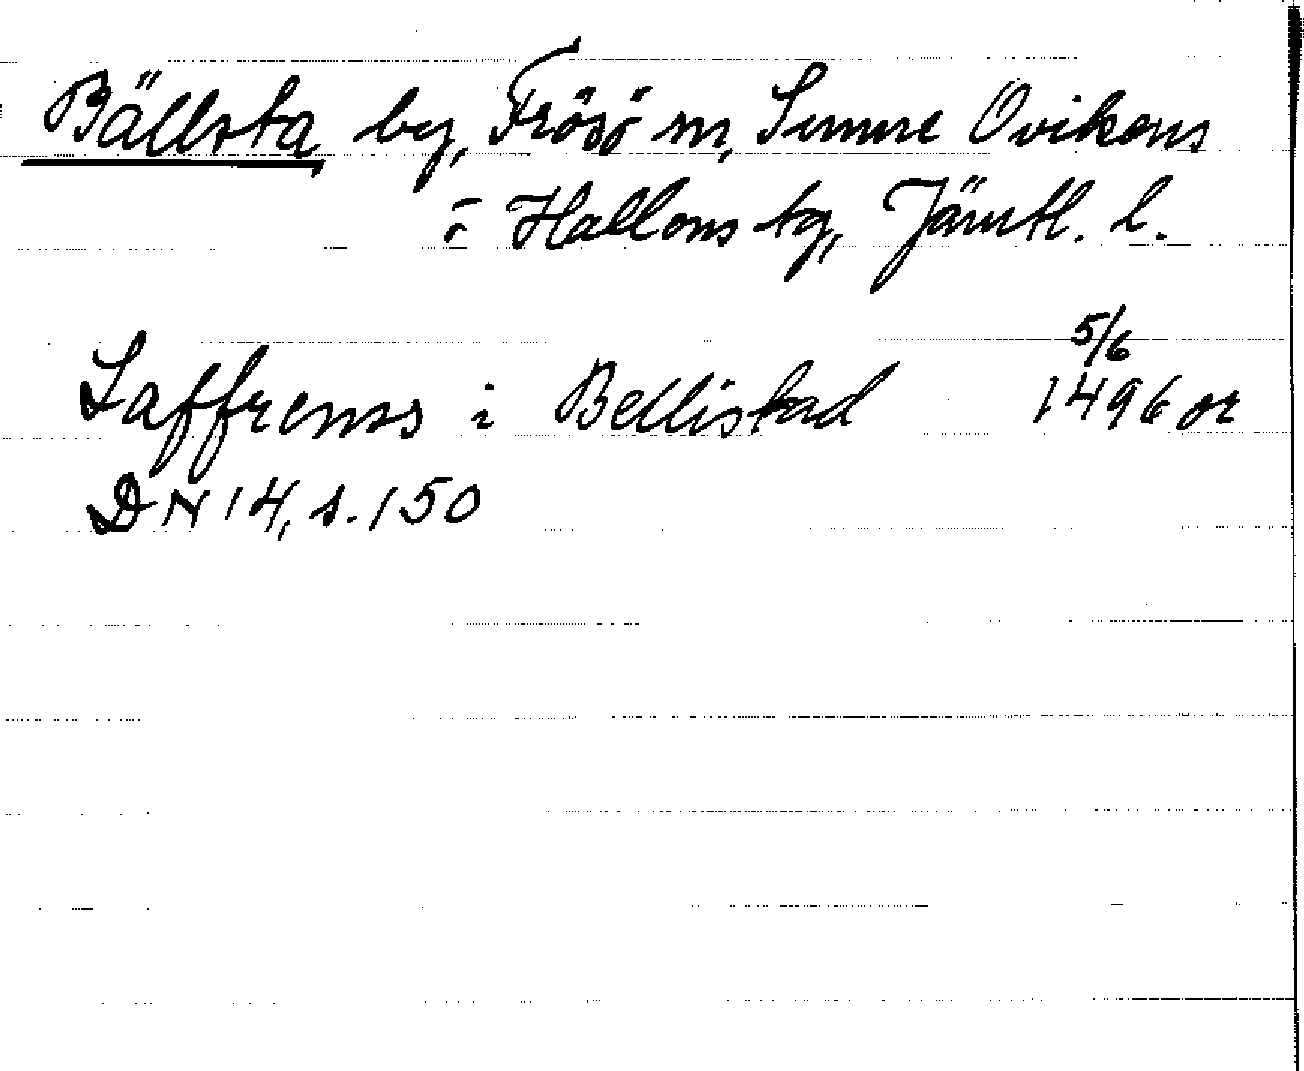 Bällsta by, Frösö sn, Sunne Ovikens
o. Hallens tg, Jämtl. l.
5/6
Laffrens i Bellistad 1496 or
DN 14, s. 150